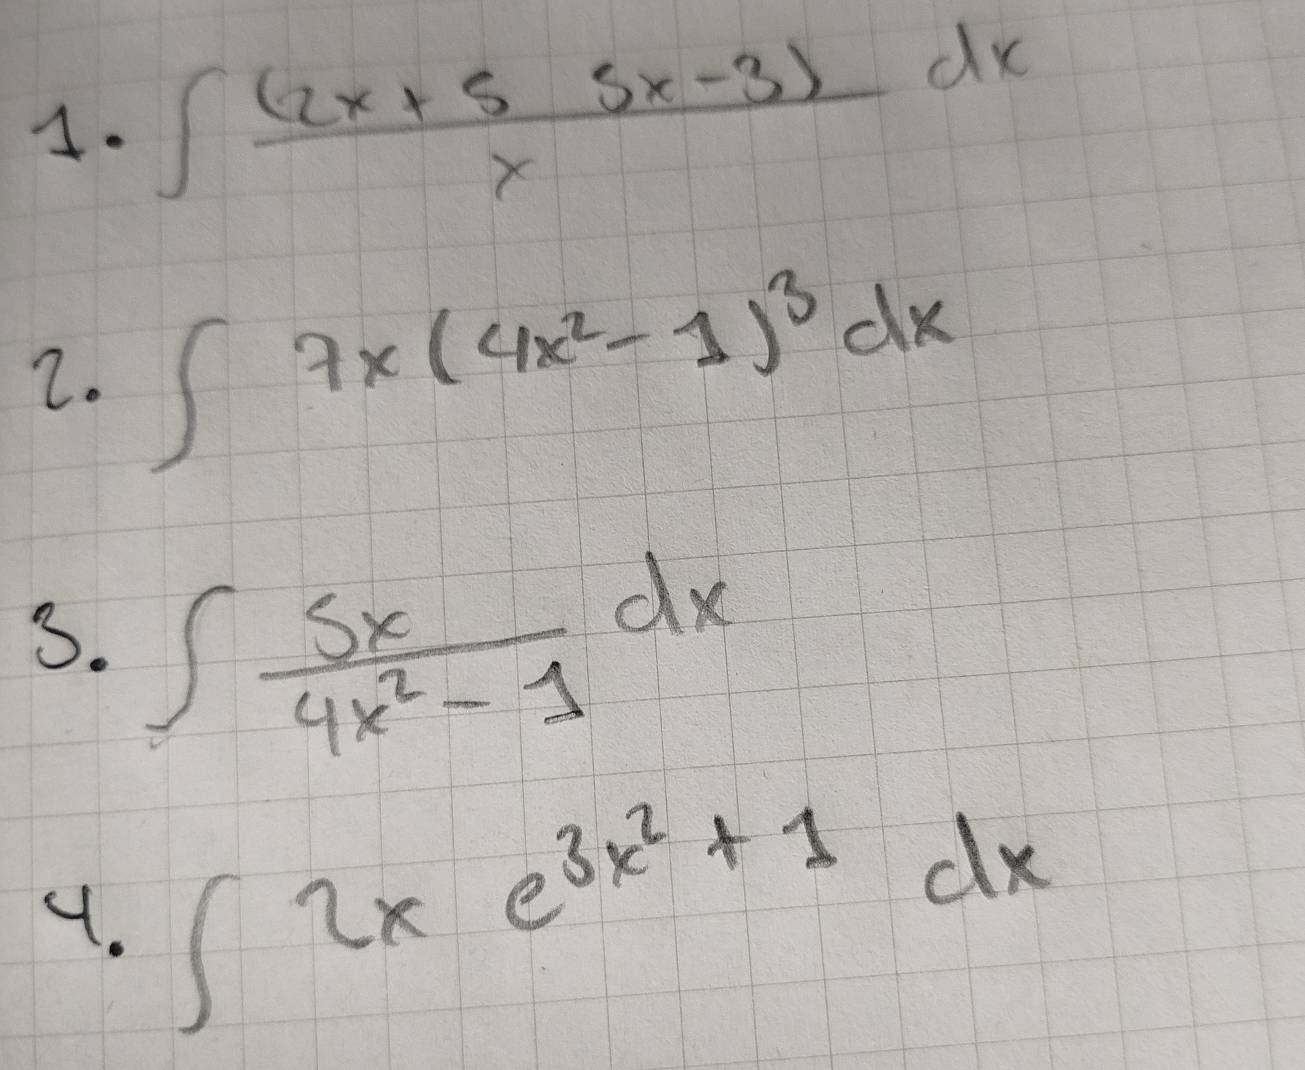 1. ∫ (2x + 5 5x - 3) / x dx
2. ∫ 7x (4x² - 1)³ dx
3. ∫ 5x / 4x² - 1 dx
4. ∫ 2x e^3x² + 1 dx